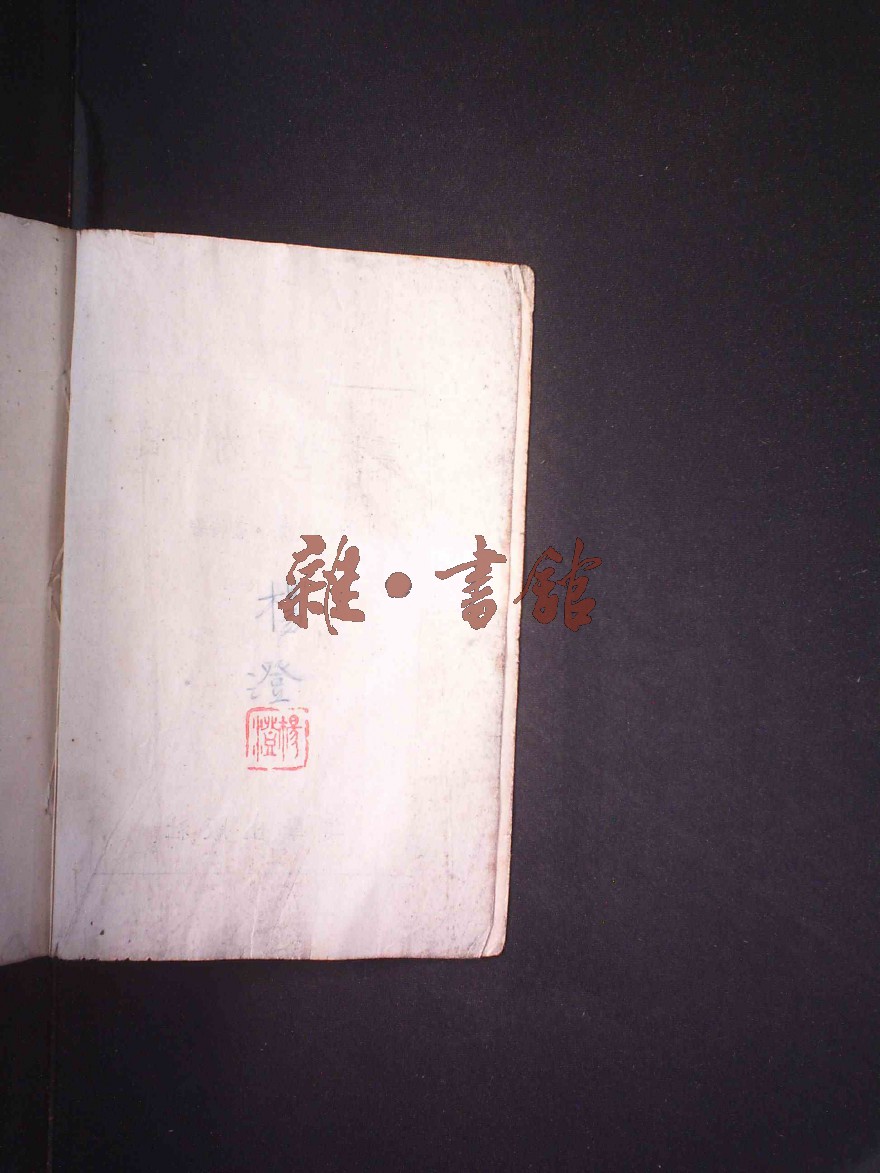 雜·書館
楊
澄
楊澄